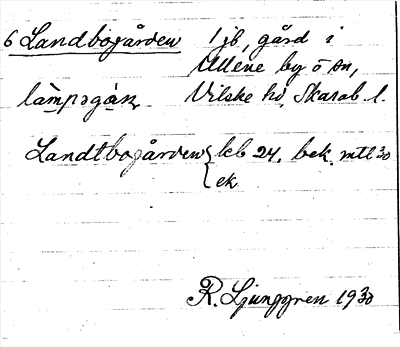 6 Landbogården 1 jb, gård i
Ullene by o sn,
Vilske hd, Skarab. l.
Landtbogården jb 24, bek. mtl 30
ek
R. Ljunggren 1930